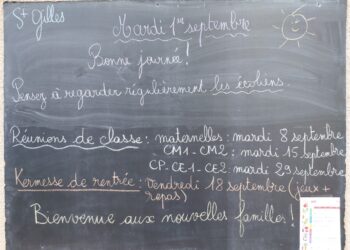 St Gilles
Mardi 1er septembre
Bonne journée !
Pensez à regarder régulièrement les écoliens.
Réunions de classe : maternelles : mardi 8 septembre
CM1-CM2 : mardi 15 septembre
CP-CE1-CE2 : mardi 29 septembre
Kermesse de rentrée : vendredi 18 septembre (jeux +
repas)
Bienvenue aux nouvelles familles !